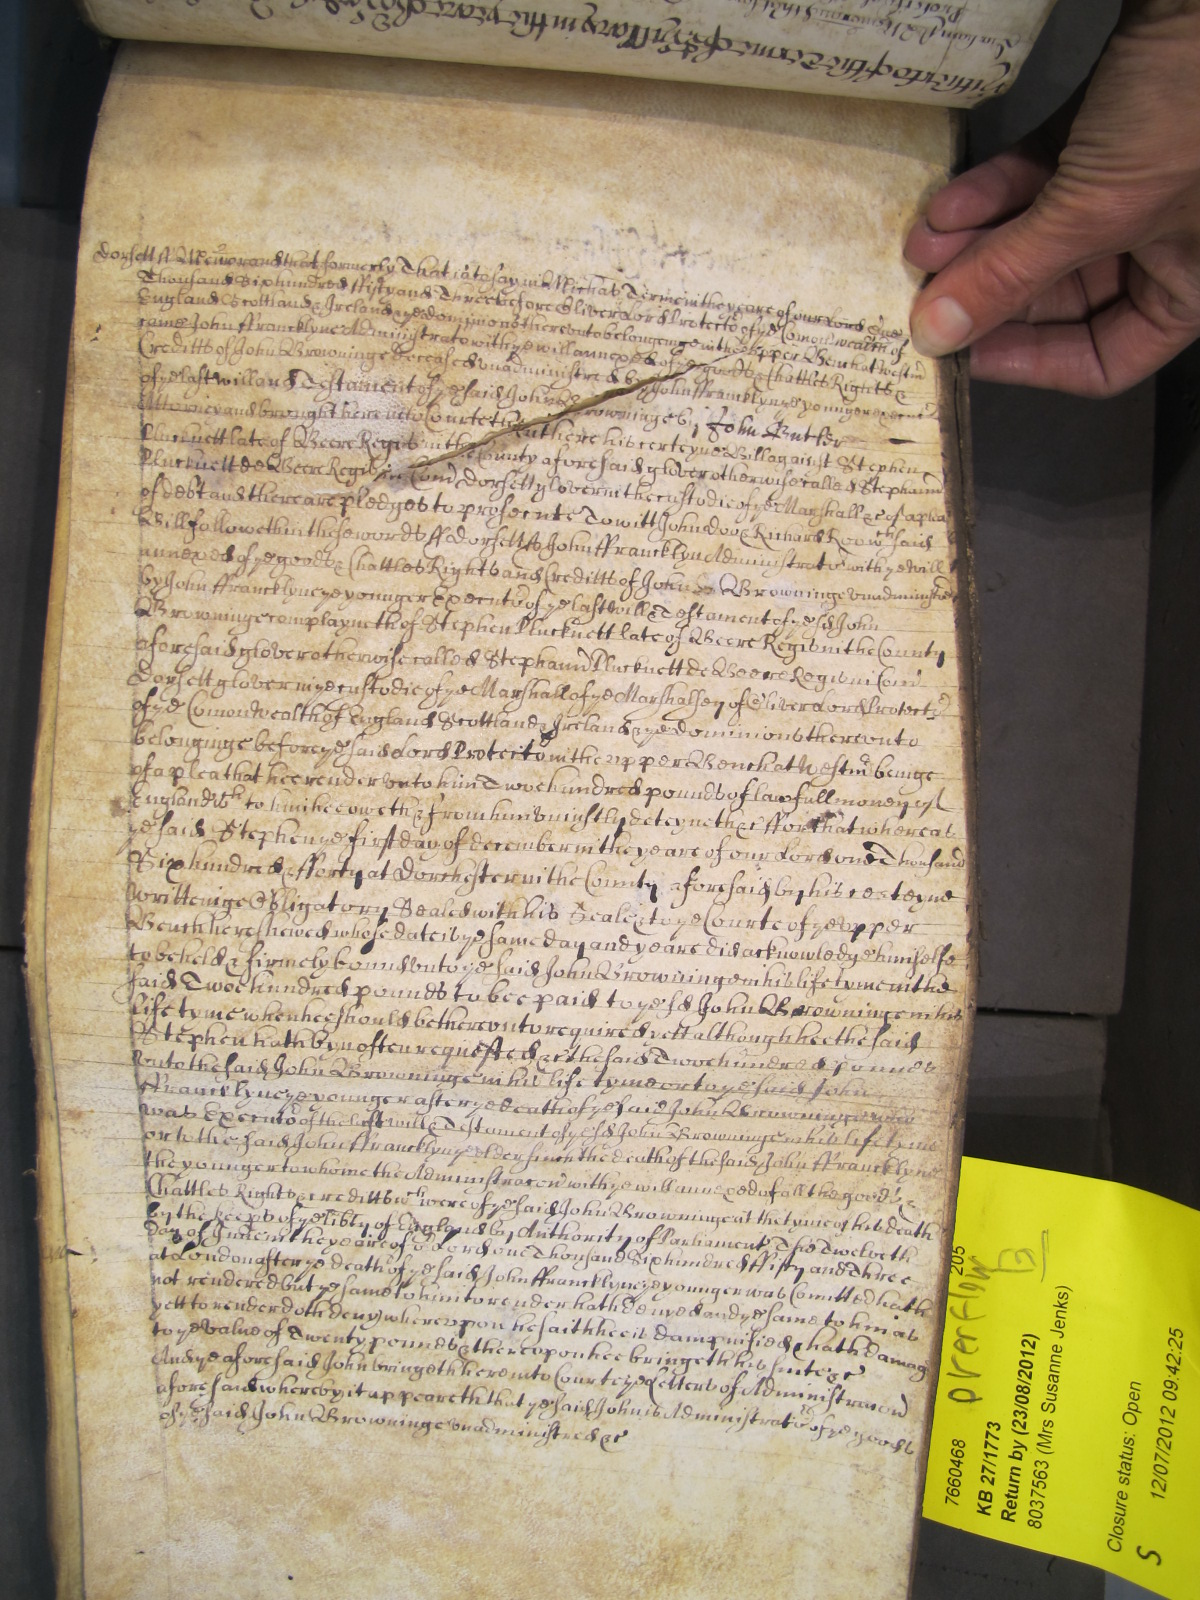 Dorsett ss Memorand that formerly That is to say in Michas Terme in the yeare of our Lord One
Thousand Six hundred ffifty and Three before Oliver Lord Protector of ye Comonwealth of
England Scottland & Ireland & ye dominions thereunto belonginge in the Upper Bench at Westm
came John ffrancklyne Administrator with ye will annexed of ye goods Chattles Rights &
Creditts of John Browninge deceased unadministred by John ffrancklyn ye younger Executor
of ye last will and Testament of ye said John Browninge by John Butler
Attorney and brought here into Courte then there his certeyne Bill against Stephen
Plucknett late of Beere Regis in the County aforesaid glover otherwise called Stephann
Plucknett de Beere Regis in Com Dorsett glover in the custodie of ye Marshall &c of a plea
of debt and there are pledges to prosecute To witt John Doo & Richard Roo wch said
Bill followeth in these words ss Dorsett ss John ffrancklyn Administrator with ye will
annexed of ye goods Chattles Rights and Creditts of John Browninge unadministred
by John ffrancklyne ye younger Executor of ye last will & Testament of ye sd John
Browninge complayneth of Stephen Plucknett late of Beere Regis in the County
aforesaid glover otherwise called Stephann Plucknett de Beere Regis in Com
Dorsett glover in ye custodie of ye Marshall of ye Marshalsey of Oliver Lord Protector
of ye Comonwealth of England Scottland & Ireland & ye dominions thereunto
belonginge before ye said Lord Protector in the upper Bench at Westm beinge
of a plea that hee render unto him Twoe hundred pounds of lawfull money of
England wch to him hee oweth & from him uniustly deteyneth &c ffor that whereas
ye said Stephen ye first day of december in the yeare of our Lord one Thousand
Six hundred & fforty at Dorchester in the County aforesaid by his certeyne
writteinge Obligatory Sealed with his Seale & to ye Courte of ye upper
Bench here shewed whose date is ye same day and yeare did acknowledge himselfe
to be held & firmely bound unto ye said John Browninge in his life tyme in the
said Twoe hundred pounds to bee paid to ye sd John Browninge in his
life tyme when hee should be thereunto required yett although hee the said
Stephen hath byn often requested &c the said Twoe hundred pounds
unto the said John Browninge in his life tyme or to ye said John
ffrancklyne ye younger after ye death of ye said John Browninge who
was Executor of the last will & Testament of ye sd John Browninge in his life tyme
or to the said John ffrancklyn ye elder since the death of the said John ffrancklyne
the younger to whome the Administracon with ye will annexed of all the goods
Chattles Rights & creditts wch were of ye said John Browninge at the tyme of his death
by the keeps of ye libty of England by Authority of Parliament The Twelveth
day of June in the yeare of or Lord one Thousand Six hundred ffifty and Three
at London after ye death of ye said John ffrancklyne ye younger was Comitted hath
not rendered but ye same to him to render hath denyed and ye same to him as
yett to render doth deny whereupon he saith hee is dampnified & hath damage
to ye value of Twenty pounds & thereupon hee bringeth his suite &c
And ye aforesaid John bringeth here into Courte ye Letters of Administracon
aforesaid whereby it appeareth that ye said John is Administrator of ye goods
of ye said John Browninge unadministred &c
7660468
205
overflow
13
KB 27/1773
Return by (23/08/2012)
8037563 (Mrs Susanne Jenks)
Closure status: Open
S
12/07/2012 09:42:25